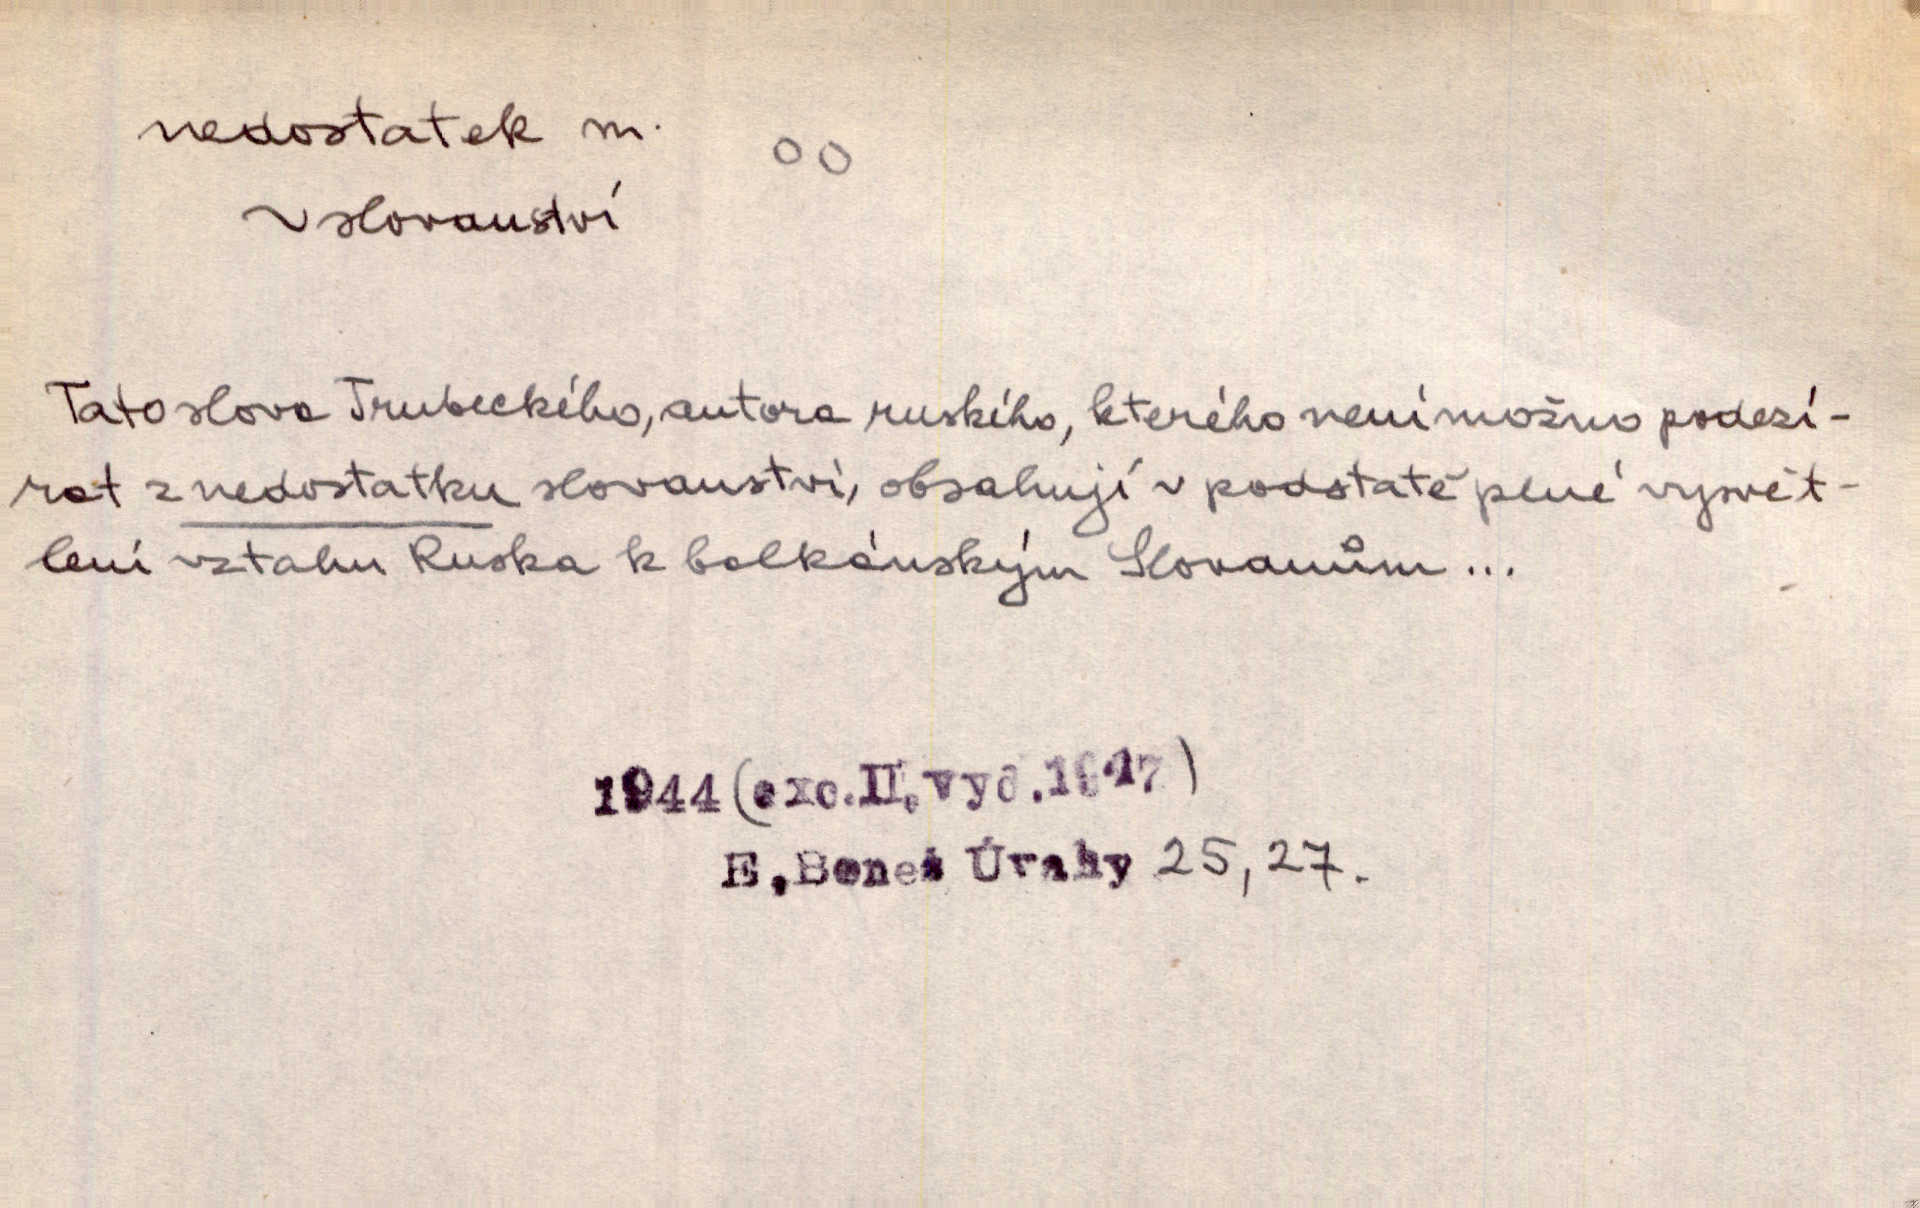 nedostatek m.
oo
v slovanství
Tato slova Trubeckého, autora ruského, kterého není možno podezí-
rat z nedostatku slovanství, obsahují v podstatě plné vysvět-
lení vztahu Ruska k balkánským Slovanům...
1944 (exc. II. vyd. 1947)
E. Beneš Úvahy 25, 27.